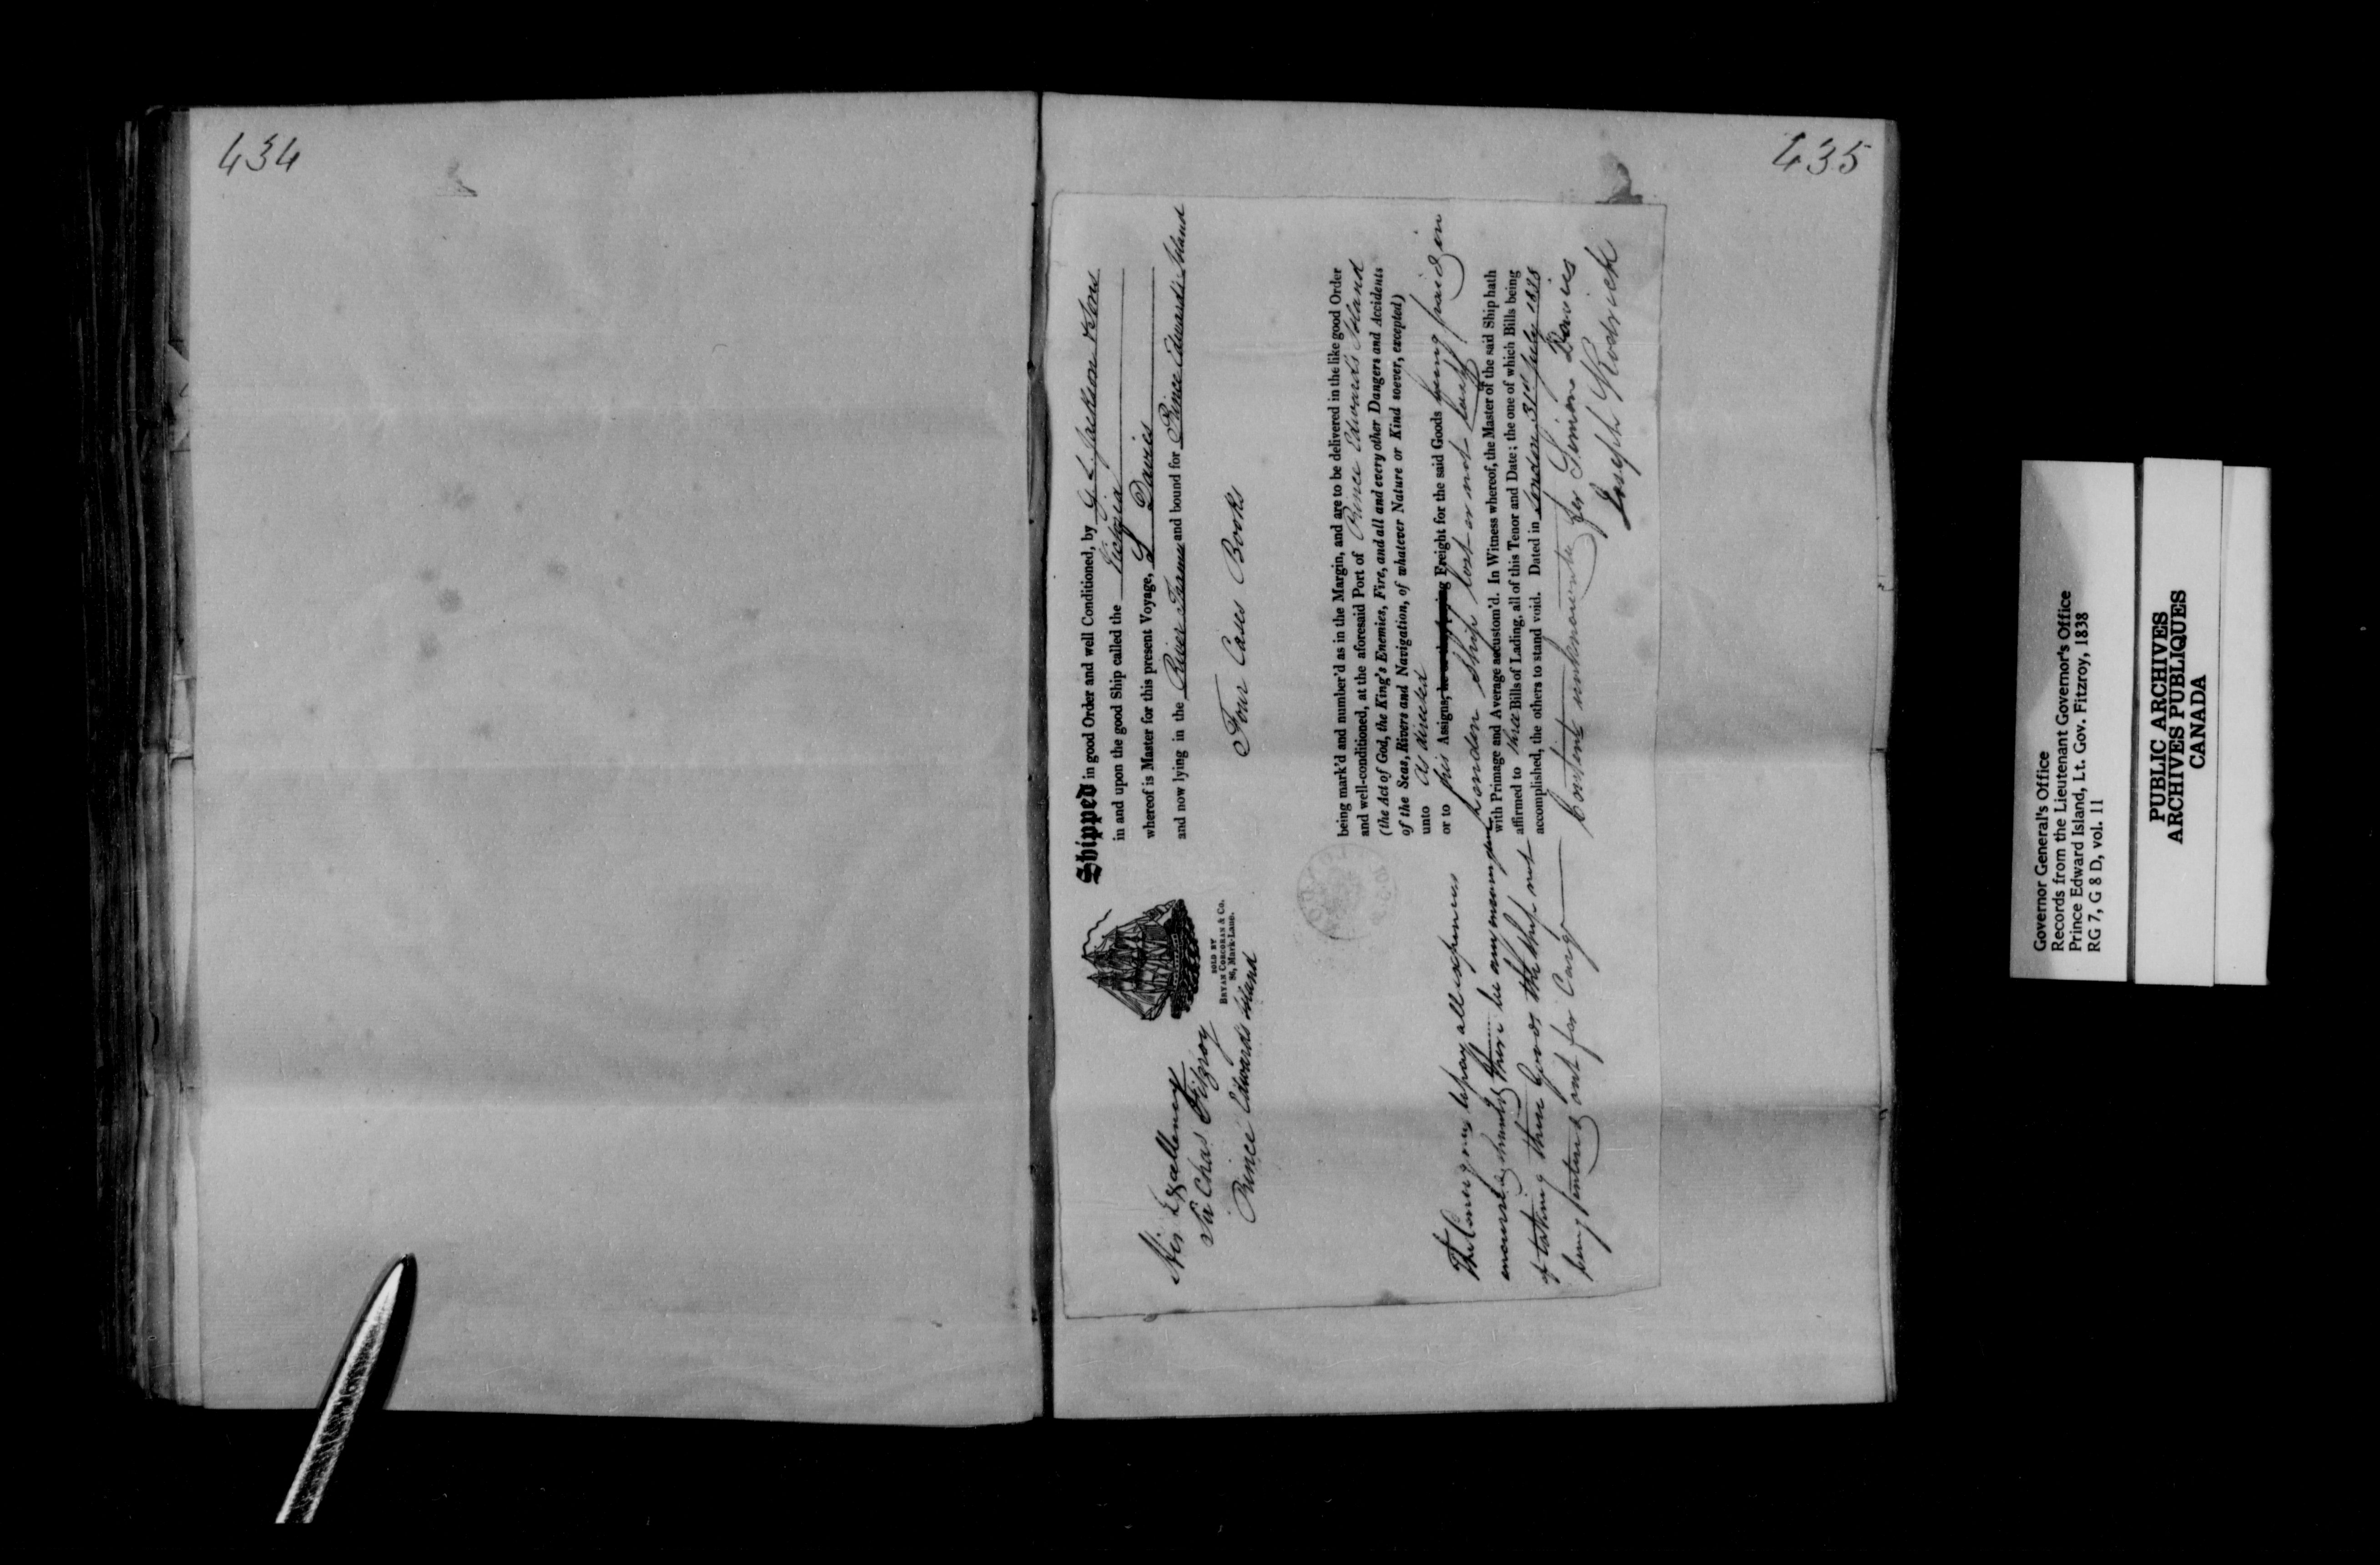 434
435
Shipped in good Order and well Conditioned, by G. L. Jackson & Sons
in and upon the good Ship called the Victoria
whereof is Master for this present Voyage, S Davies
and now lying in the River Thames and bound for Prince Edwards Island
Four Cases Books
being mark'd and number'd as in the Margin, and are to be delivered in the like good Order
and well-conditioned, at the aforesaid Port of Prince Edwards Island
(the Act of God, the King's Enemies, Fire, and all and every other Dangers and Accidents
of the Seas, Rivers and Navigation, of whatever Nature or Kind soever, excepted)
unto as directed
or to his Assigns, he or they paying Freight for the said Goods being paid in
London Ship lost or not lost
with Primage and Average accustom'd. In Witness whereof, the Master of the said Ship hath
affirmed to three Bills of Lading, all of this Tenor and Date; the one of which Bills being
accomplished, the others to stand void. Dated in London 31st July 1838
Contents unknown to for Simon Davies
Joseph Rodrick
SOLD BY
BRYAN CORCORAN & Co.
36, Mark-Lane.
His Excellency
Sir Chas Fitzroy
Prince Edwards Island
The Consignees to pay all expenses
incurred should there be any
of taking these Goods the Ship not
being entered out for Cargo
Governor General's Office
Records from the Lieutenant Governor's Office
Prince Edward Island, Lt. Gov. Fitzroy, 1838
RG 7, G 8 D, vol. 11
PUBLIC ARCHIVES
ARCHIVES PUBLIQUES
CANADA